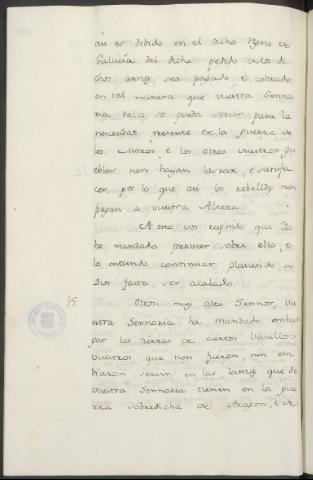 asi es debido en el dicho Regno de
Gallicia del dicho pedido delos di
chos annos sea pagado, e cobrado
en tal manera que vuestra Senno
ria dello se pueda servir para la
necesidat presente de la guerra de
los Moros, e los otros vuestros pu
eblos non hayan lasrar, e satisfa
cer, por lo que asi los rebelldes non
pagan a vuestra Alteza.
A esto vos respondo que Yo
he mandado proveer sobre ello, e
lo entiendo continuar, plaziendo a
Dios fasta ser acabado.
35. Otrosi muy alto Sennor, vu
estra Sennoria ha mandado embar
gar las tierras de ciertos Vasallos
vuestros que non fueron, nin em
biaron servir en las lanzas que de
vuestra Sennoria tienen en la gue
rra sobredicha de Aragon, e de